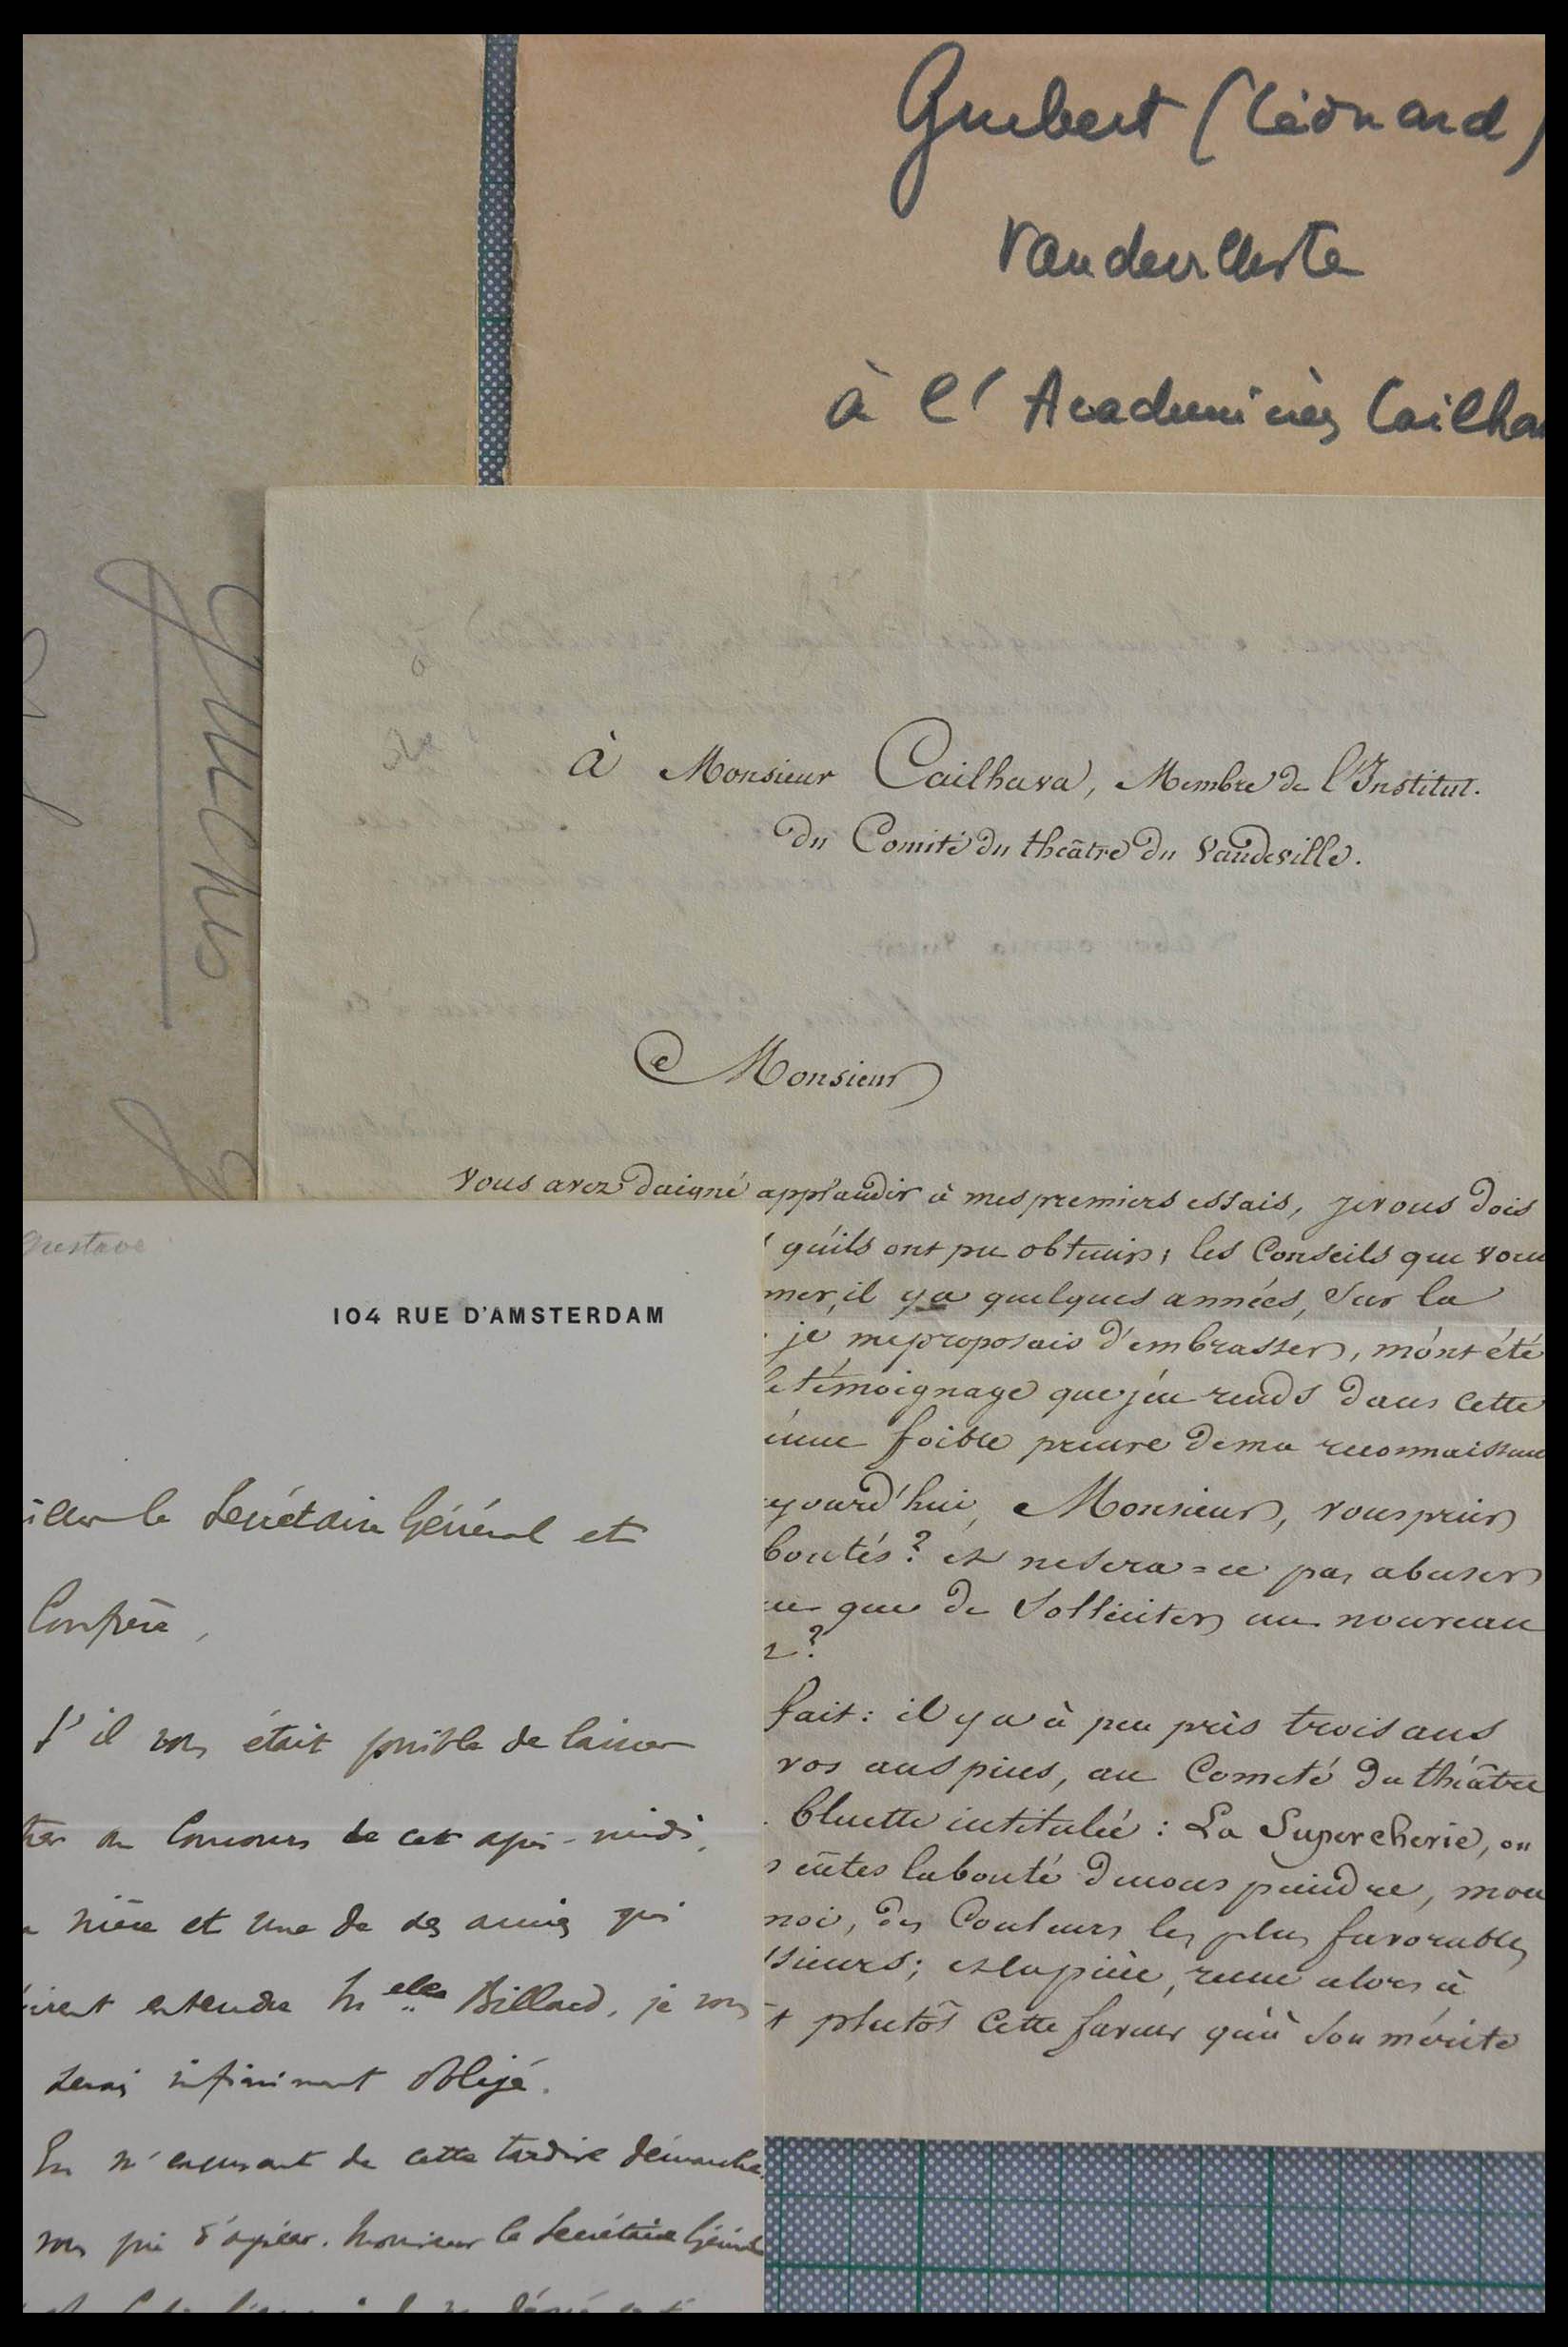 Guibert (Léonard)
Vaudevilliste
à l'Académicien Cailha
à Monsieur Cailhava, Membre de l'Institut.
du Comité du théâtre du Vaudeville.
Monsieur
vous avez daigné applaudir à mes premiers essais, je vous dois
qu'ils ont pu obtenir; les Conseils que vous
mer, il y a quelques années, sur la
je me proposais d'embrasser, m'ont été
le témoignage que j'en rends dans cette
foible preuve de ma reconnaissance
jourd'hui, Monsieur, vous prier
bontés? et ne sera=ce pas abuser
que de solliciter un nouveau
?
fait: il y a à peu près trois ans
vos auspices, au Comité du théâtre
bluette intitulée: La Supercherie, ou
eûtes la bonté de nous peindre, mon
moi, des Couleurs les plus favorables
ssieurs; et la pièce, reçue alors à
t plutôt cette faveur qu'à son mérite
Gustave
104 RUE D'AMSTERDAM
le Secrétaire Général et
Confrère,
S'il vous était possible de laisser
au Concours de cet après-midi,
nièce et une de ses amies qui
entendre Melles Billard, je vous
serai infiniment obligé.
En m'excusant de cette tardive démarche,
vous prie d'agréer, Monsieur le Secrétaire Général